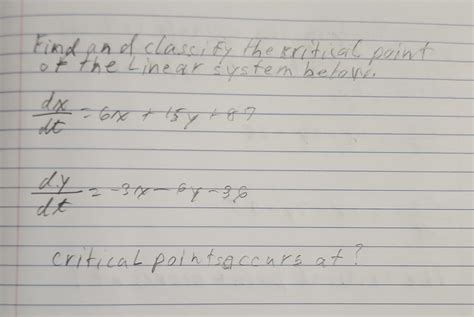 Find and classify the critical point
of the Linear system below.
dx/dt = 6x + 15y + 87
dy/dt = -3x - 6y - 36
critical points occurs at?